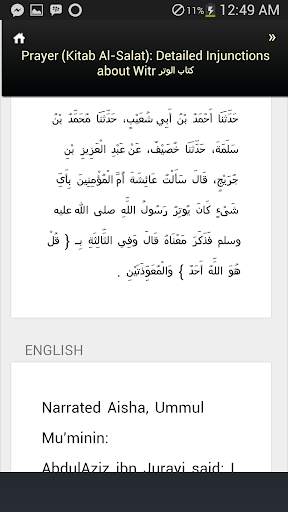 11% 12:49 AM
»
Prayer (Kitab Al-Salat): Detailed Injunctions
about Witr كتاب الوتر
حَدَّثَنَا أَحْمَدُ بْنُ أَبِي شُعَيْبٍ، حَدَّثَنَا مُحَمَّدُ بْنُ
سَلَمَةَ، حَدَّثَنَا خُصَيْفٌ، عَنْ عَبْدِ الْعَزِيزِ بْنِ
جُرَيْجٍ، قَالَ سَأَلْتُ عَائِشَةَ أُمَّ الْمُؤْمِنِينَ بِأَىِّ
شَىْءٍ كَانَ يُوتِرُ رَسُولُ اللَّهِ صلى الله عليه
وسلم فَذَكَرَ مَعْنَاهُ قَالَ وَفِي الثَّالِثَةِ بِـ { قُلْ
هُوَ اللَّهُ أَحَدٌ } وَالْمُعَوِّذَتَيْنِ .
ENGLISH
Narrated Aisha, Ummul
Mu'minin:
AbdulAziz ibn Jurayj said: I